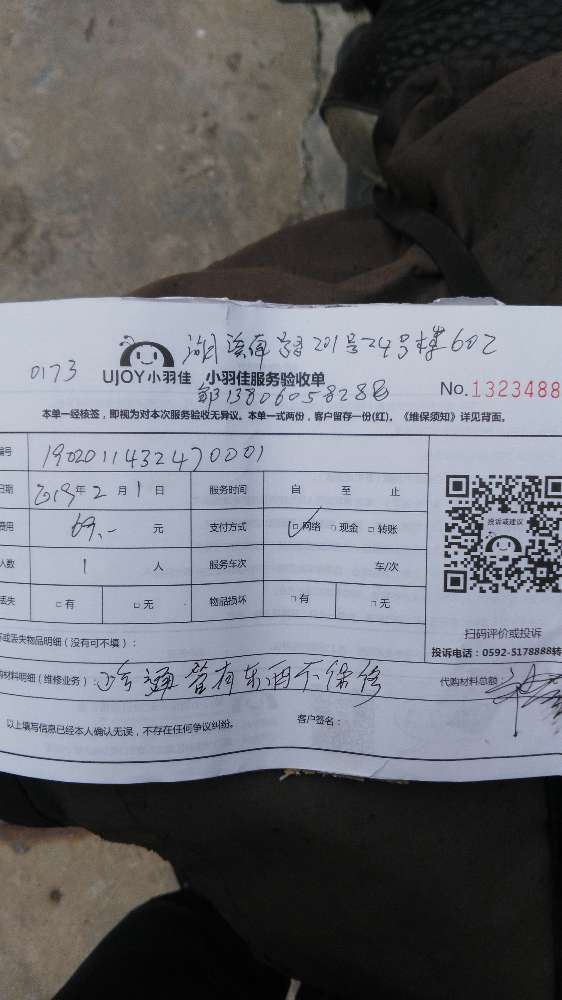 湖滨南路201号24号楼602
0173 UJOY小羽佳 小羽佳服务验收单
邹13806058288
No.1323488
本单一经核签，即视为对本次服务验收无异议。本单一式两份，客户留存一份(红)。《维保须知》详见背面。
编号 1902011432470001
日期 2019年2月1日 服务时间 自 至 止
费用 69.- 元 支付方式 ☑网络 □现金 □转账
人数 1 人 服务车次 车/次
丢失 □有 □无 物品损坏 □有 □无
投诉或建议
扫码评价或投诉
投诉电话：0592-5178888转
坏或丢失物品明细（没有可不填）：
购材料明细（维修业务）：疏通管有东西不保修 代购材料总额
以上填写信息已经本人确认无误，不存在任何争议纠纷。 客户签名：